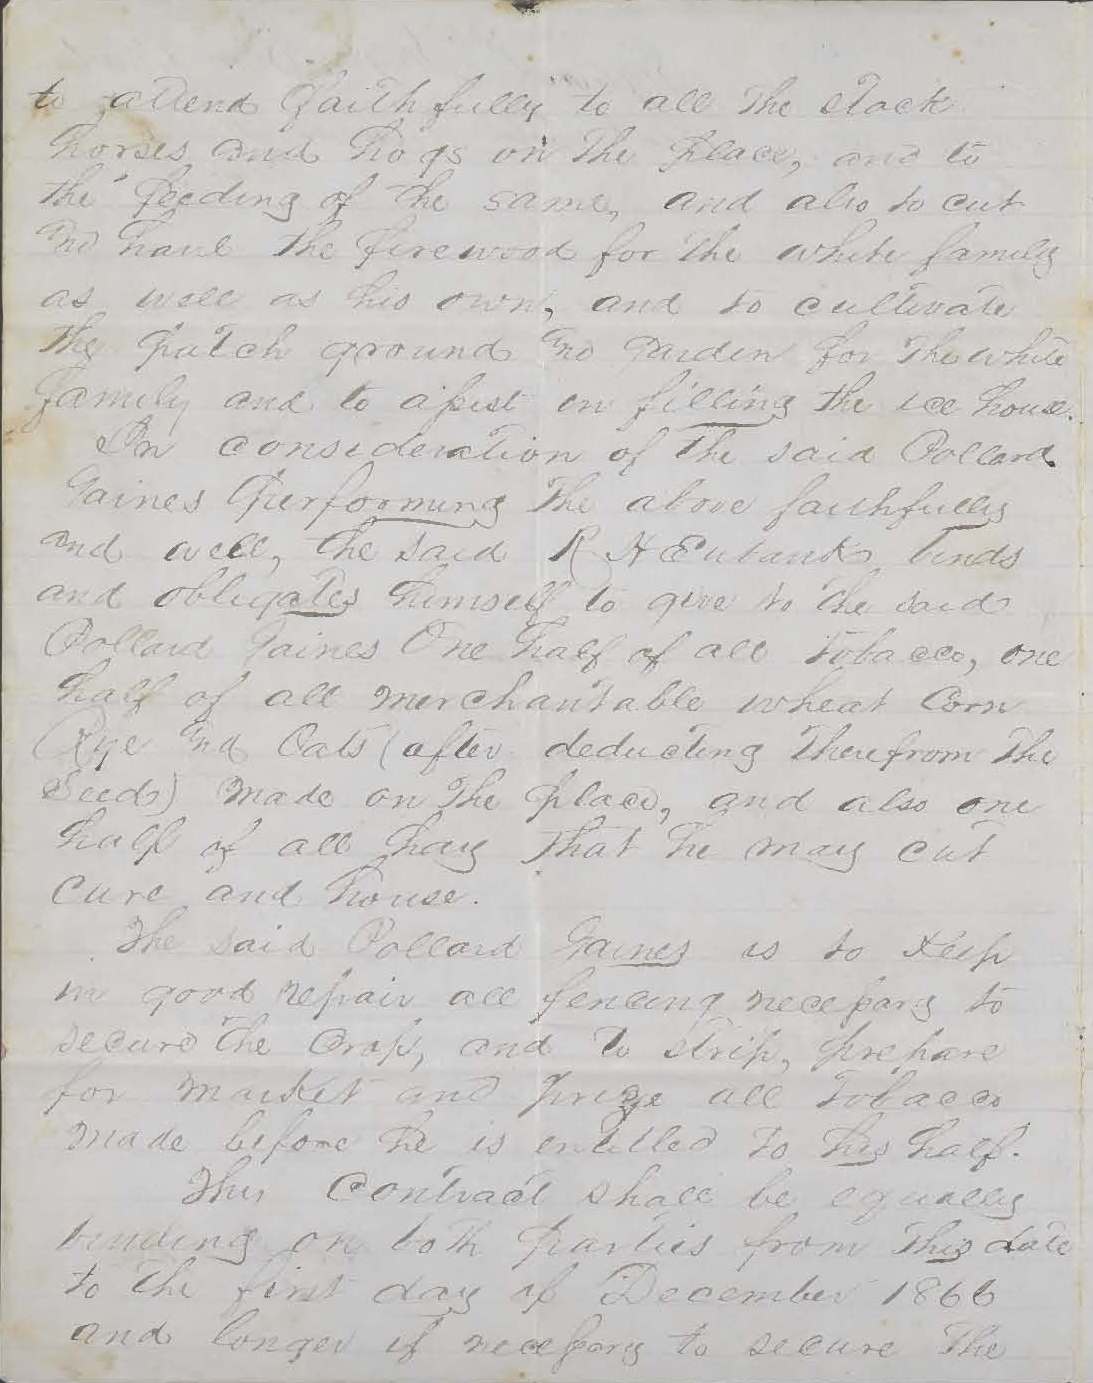 to attend faithfully to all the stock
horses and hogs on the place, and to
the feeding of the same, and also to cut
and haul the firewood for the white family
as well as his own, and to cultivate
the patch ground and garden for the white
family and to assist in filling the ice house.
In consideration of the said Pollard
Gaines performing the above faithfully
and well, the said R H Eubank binds
and obligates himself to give to the said
Pollard Gaines One half of all tobacco, one
half of all merchantable wheat Corn
Rye and Oats (after deducting therefrom the
Seeds) made on the place, and also one
half of all hay that he may cut
cure and house.
The said Pollard Gaines is to keep
in good repair all fencing necessary to
secure the Crop, and to strip, prepare
for market and prize all tobacco
made before he is entitled to his half.
This Contract shall be equally
binding on both parties from this date
to the first day of December 1866
and longer if necessary to secure the